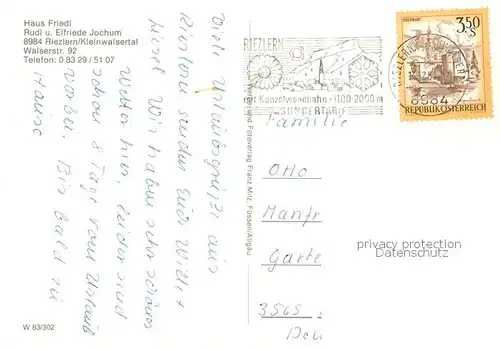 Haus Friedl
Rudi u. Elfriede Jochum
8984 Riezlern/Kleinwalsertal
Walserstr. 92
Telefon: 0 83 29 / 51 07
Viele Urlaubsgrüße aus
Riezlern senden Euch Willi +
Liesel. Wir haben sehr schönes
Wetter hier, leider sind
schon 8 Tage vom Urlaub
vorbei. Bis bald zu
Hause
W 83/302
Verlag und Fotoverlag Franz Milz, Füssen/Allgäu
RIEZLERN
mit Kanzelwandbahn · 1100-2000 m
SONDERTARIF
8984
3.50
S
REPUBLIK ÖSTERREICH
Familie
Otto
Manfr
Garte
3565
privacy protection
Datenschutz